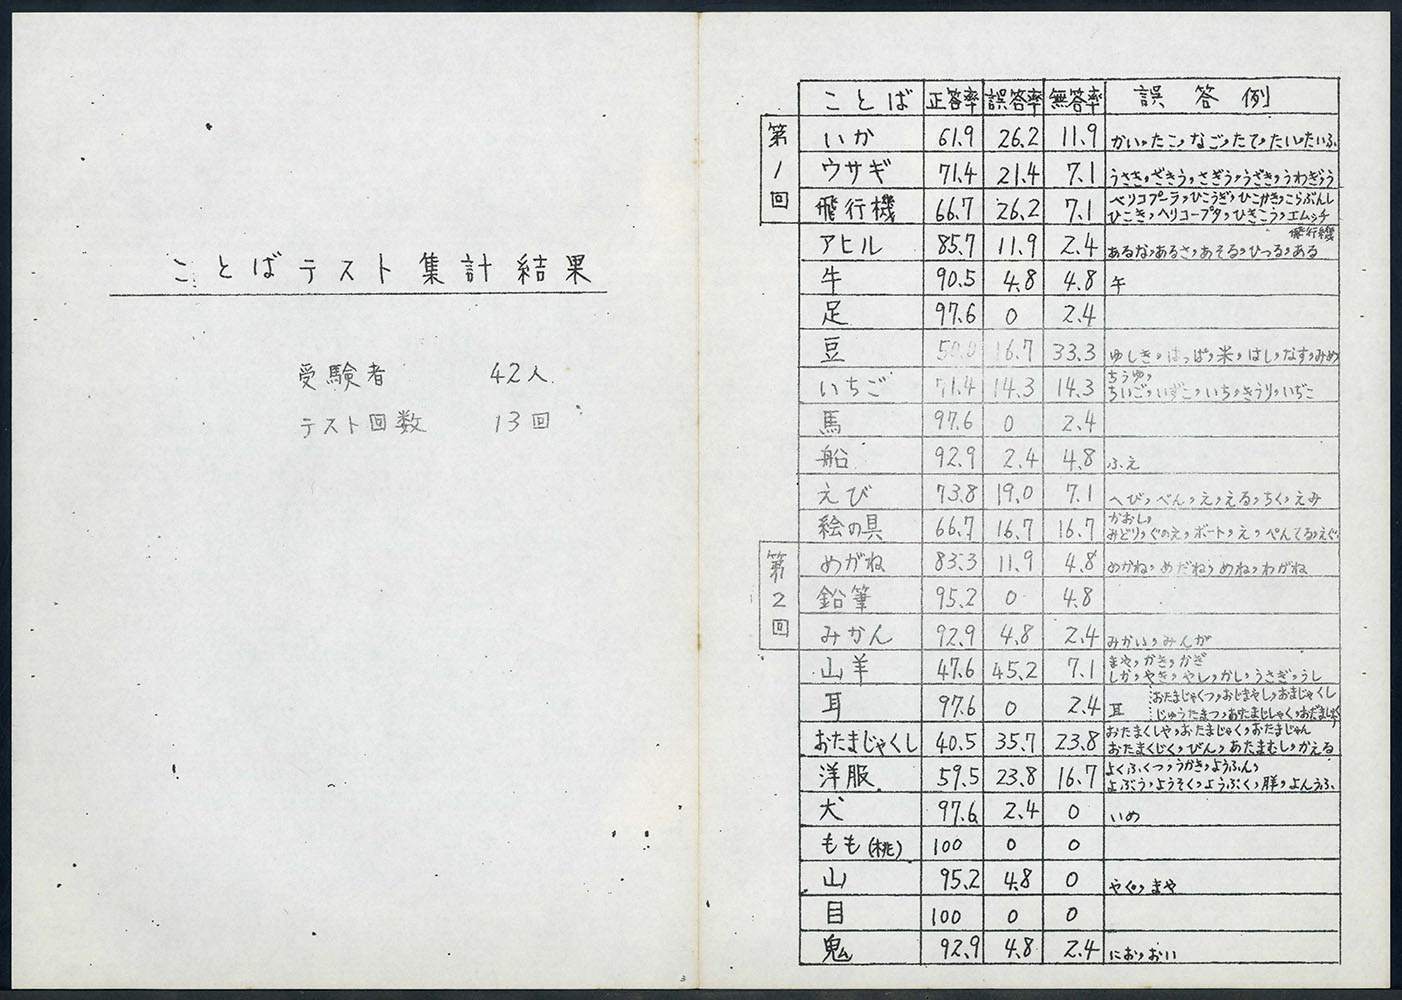 ことばテスト集計結果
受験者 42人
テスト回数 13回
3
ことば 正答率 誤答率 無答率 誤答例
第1回
いか 61.9 26.2 11.9 かい,たこ,なご,たて,たい,たいふ
ウサギ 71.4 21.4 7.1 うさき,ざきう,さぎう,うざき,うわぎ,う
飛行機 66.7 26.2 7.1 ベリコプーラ,ひこうぎ,ひこかき,こらぶんし
ひこき,ヘリコープタ,ひきこう,エムッチ
飛行機
アヒル 85.7 11.9 2.4 あるな,あるさ,あそる,ひつる,ある
牛 90.5 4.8 4.8 午
足 97.6 0 2.4
豆 50.0 16.7 33.3 ゆしき,はっぱ,米,はし,なす,みめ
いちご 71.4 14.3 14.3 ちうゆ,
ちいご,いずこ,いち,きうり,いぢこ
馬 97.6 0 2.4
船 92.9 2.4 4.8 ふえ
えび 73.8 19.0 7.1 へび,べん,え,える,ちく,えみ
絵の具 66.7 16.7 16.7 かおし,
みどり,ぐのえ,ボート,え,ぺんてる,えぐ
第2回
めがね 83.3 11.9 4.8 めかね,めだね,めね,わがね
鉛筆 95.2 0 4.8
みかん 92.9 4.8 2.4 みかい,みんが
山羊 47.6 45.2 7.1 まや,かき,かぎ
しか,やき,やし,かし,うさぎ,うし
耳 97.6 0 2.4 耳 おたまじゃくつ,おじまやし,おまじゃくし
じゅうたまつ,あたまじしゃく,おだましゃく
おたまじゃくし 40.5 35.7 23.8 おたまくしや,おたまじゃく,おたまじゃん
おたまくじく,びん,あたまむし,かえる
洋服 59.5 23.8 16.7 よくふくつ,うかき,ようふん,
よぶう,ようそく,ようぶく,胖,よんうふ
犬 97.6 2.4 0 いめ
もも(桃) 100 0 0
山 95.2 4.8 0 やぐ,まや
目 100 0 0
鬼 92.9 4.8 2.4 にお,おい